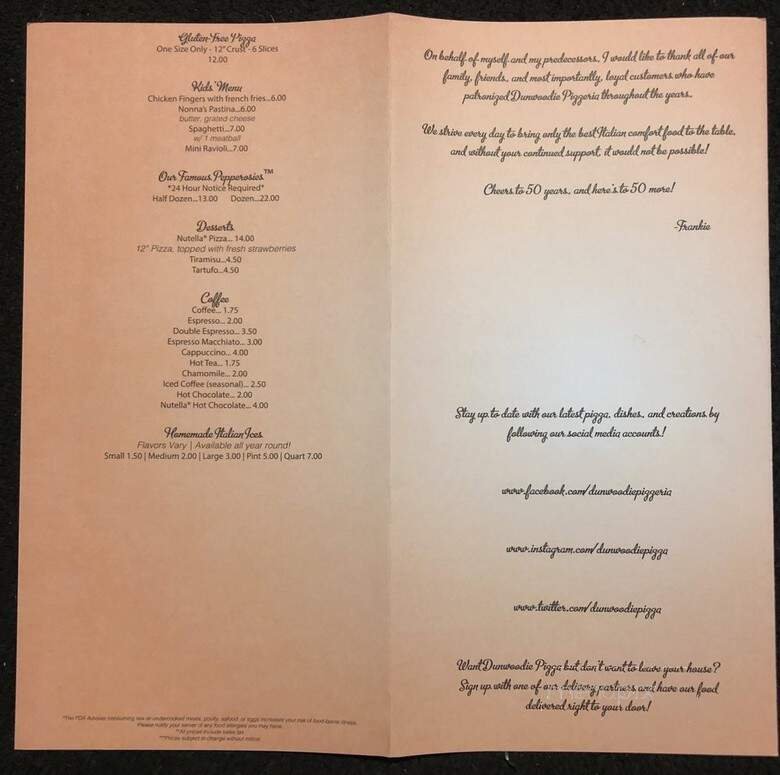 Gluten-Free Pizza
One Size Only - 12" Crust - 6 Slices
12.00
Kids' Menu
Chicken Fingers with french fries...6.00
Nonna's Pastina...6.00
butter, grated cheese
Spaghetti...7.00
w/ 1 meatball
Mini Ravioli...7.00
Our Famous Pepperosies™
*24 Hour Notice Required*
Half Dozen...13.00 Dozen...22.00
Desserts
Nutella® Pizza... 14.00
12" Pizza, topped with fresh strawberries
Tiramisu...4.50
Tartufo...4.50
Coffee
Coffee... 1.75
Espresso... 2.00
Double Espresso... 3.50
Espresso Macchiato... 3.00
Cappuccino... 4.00
Hot Tea... 1.75
Chamomile... 2.00
Iced Coffee (seasonal)... 2.50
Hot Chocolate... 2.00
Nutella® Hot Chocolate... 4.00
Homemade Italian Ices
Flavors Vary | Available all year round!
Small 1.50 | Medium 2.00 | Large 3.00 | Pint 5.00 | Quart 7.00
*The FDA Advises consuming raw or undercooked meats, poultry, seafood, or eggs increases your risk of food-borne illness.
Please notify your server of any food allergies you may have.
**All prices include sales tax
***Prices subject to change without notice
On behalf of myself and my predecessors, I would like to thank all of our
family, friends, and most importantly, loyal customers who have
patronized Dunwoodie Pizzeria throughout the years.
We strive every day to bring only the best Italian comfort food to the table,
and without your continued support, it would not be possible!
Cheers to 50 years, and here's to 50 more!
-Frankie
Stay up to date with our latest pizza, dishes, and creations by
following our social media accounts!
www.facebook.com/dunwoodiepizzeria
www.instagram.com/dunwoodiepizza
www.twitter.com/dunwoodiepizza
Want Dunwoodie Pizza but don't want to leave your house?
Sign up with one of our delivery partners and have our food
delivered right to your door!